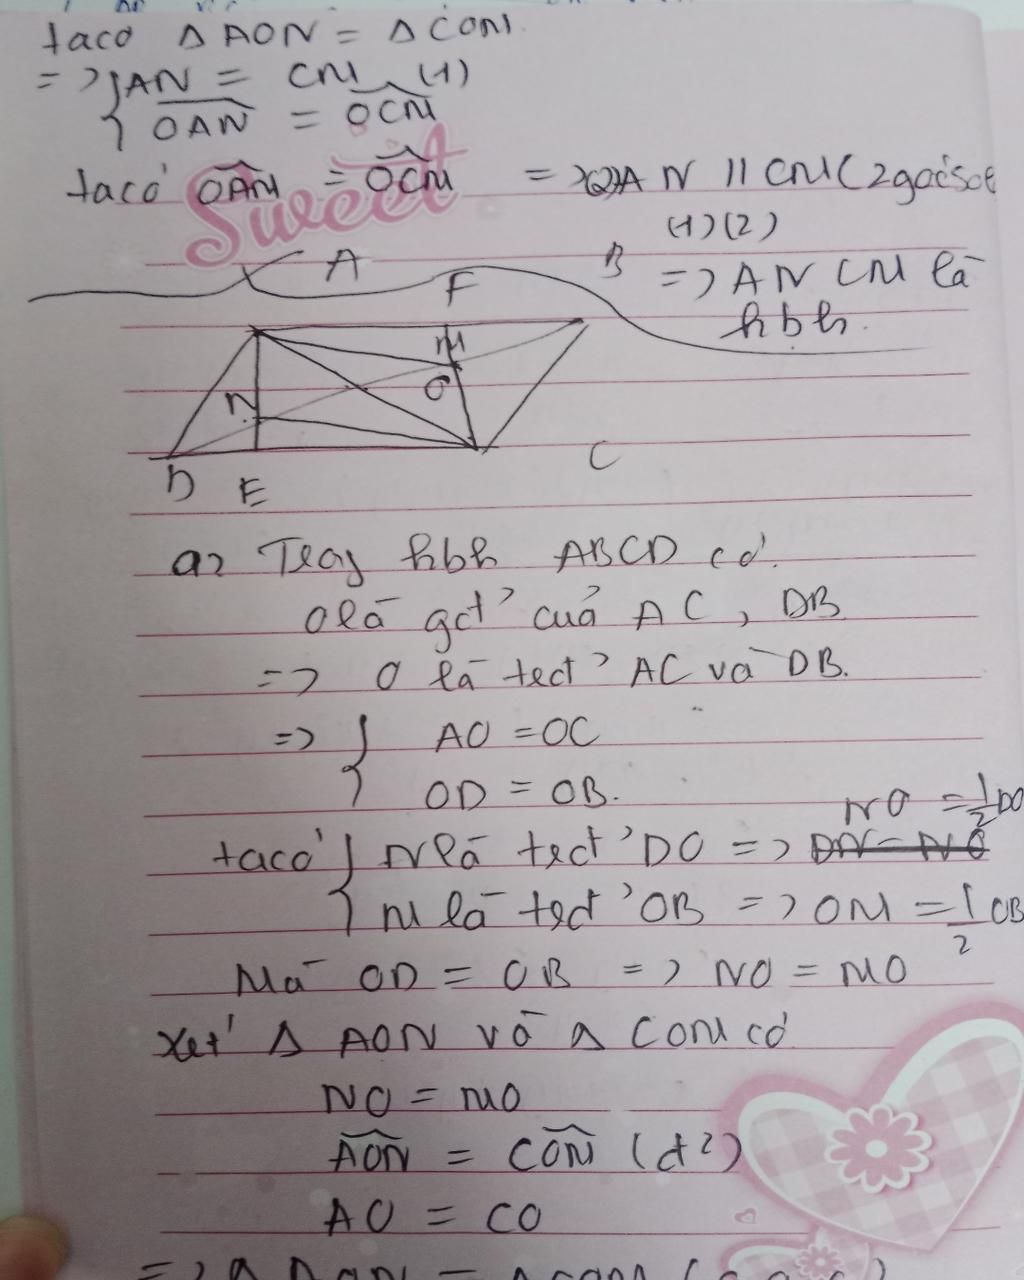 taco Δ AON = Δ COM.
=> { AN = CM (1)
OAN = OCM
Sweet
taco' OAN = OCM => (2) AN // CM ( 2 goc so e
(1) (2)
=> AN CM là
hbh.
A F B
M
O
N
D E C
a, hbh ABCD có.
O là gđ' của AC, DB
=> O là AC và DB.
=> { AO = OC
OD = OB.
NO = 1/2 DO
taco' { N là DO => DN = NO
M là OB => OM = 1/2 OB
Mà OD = OB => NO = MO
Xét Δ AON và Δ COM có
NO = MO
AON = CON (đ²)
AO = CO